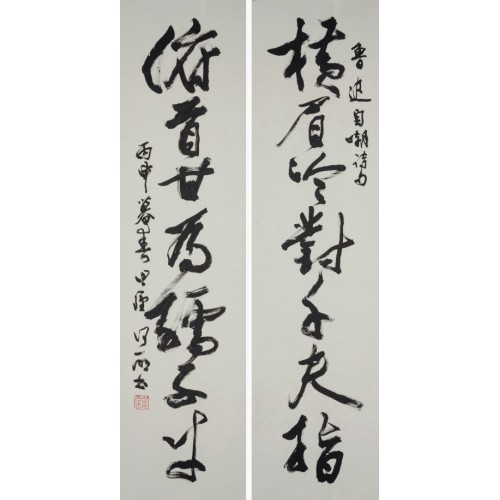 魯迅自嘲詩句
横眉冷對千夫指
俯首甘為孺子牛
丙申暮春